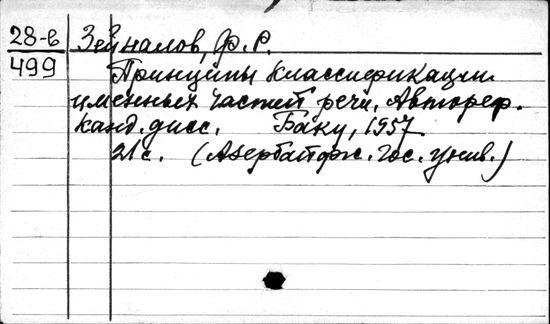 28-6 Зейналов, Ф.Р.
499
Принципы классификации
именных частей речи. Автореф.
канд. дисс. Баку, 1957
21с. (Азербайдж. Гос. унив.)